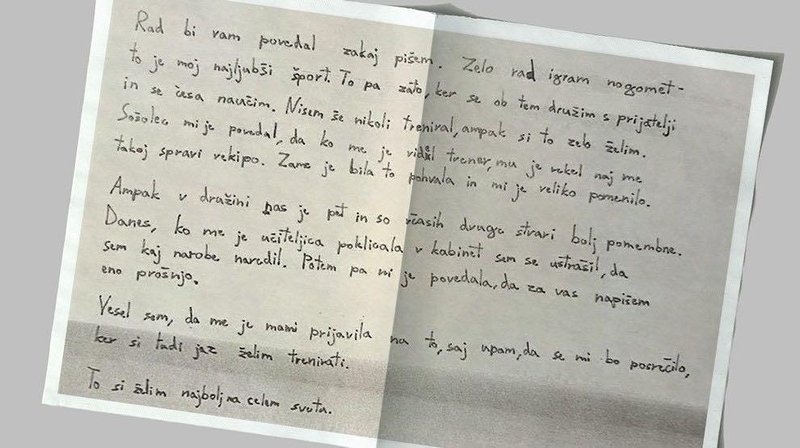 Rad bi vam povedal zakaj pišem. Zelo rad igram nogomet -
to je moj najljubši šport. To pa zato, ker se ob tem družim s prijatelji
in se česa naučim. Nisem še nikoli treniral, ampak si to zelo želim.
Sošolec mi je povedal, da ko me je videl trener, mu je rekel naj me
takoj spravi vekipo. Zame je bila to pohvala in mi je veliko pomenilo.
Ampak v družini nas je pet in so včasih druge stvari bolj pomembne.
Danes, ko me je učiteljica poklicala v kabinet sem se ustrašil, da
sem kaj narobe naredil. Potem pa mi je povedala, da za vas napišem
eno prošnjo.
Vesel sem, da me je mami prijavila na to, saj upam, da se mi bo posrečilo,
ker si tudi jaz želim trenirati.
To si želim najbolj na celem svetu.